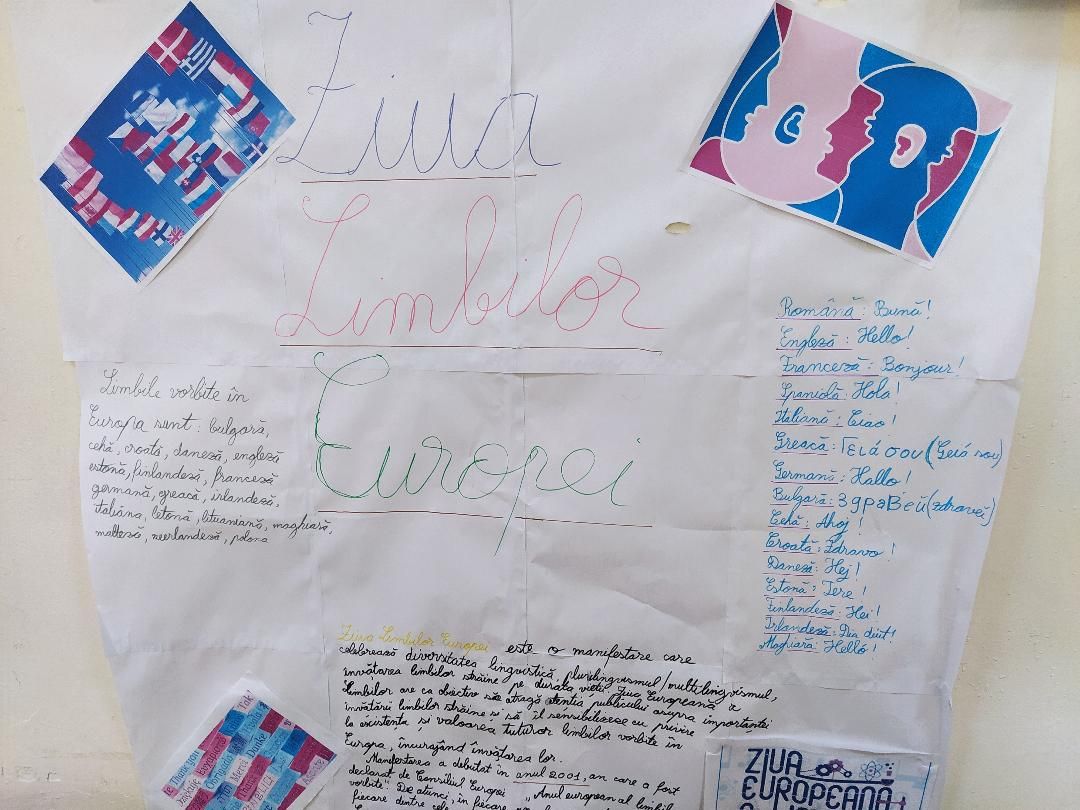 Ziua
Limbilor
Europei
Limbile vorbite în
Europa sunt: bulgară,
cehă, croată, daneză, engleză
estonă, finlandeză, franceză
germană, greacă, irlandeză,
italiana, letonă, lituaniană, maghiară,
malteză, neerlandeză, polona
Română: Bună!
Engleză: Hello!
Franceză: Bonjour!
Spaniolă: Hola!
Italiană: Ciao!
Greacă: Γειά σου (Geiá sou)
Germană: Hallo!
Bulgară: Здравей (zdraveĭ)
Cehă: Ahoj!
Croată: Zdravo!
Daneză: Hej!
Estonă: Tere!
Finlandeză: Hei!
Irlandeză: Dia duit!
Maghiară: Helló!
Ziua Limbilor Europei este o manifestare care
celebrează diversitatea lingvistică, plurilingvismul/multilingvismul,
învățarea limbilor străine pe durata vieții. Ziua Europeană a
limbilor are ca obiectiv să atragă atenția publicului asupra importanței
învățării limbilor străine și să îl sensibilizeze cu privire
la existența și valoarea tuturor limbilor vorbite în
Europa, încurajând învățarea lor.
Manifestarea a debutat în anul 2001, an care a fost
declarat de Consiliul Europei "Anul european al limbilor
vorbite". De atunci, în fiecare
fiecare dintre cele
Thank you
Obrigado
Merci
Danke
ZIUA
EUROPEANĂ